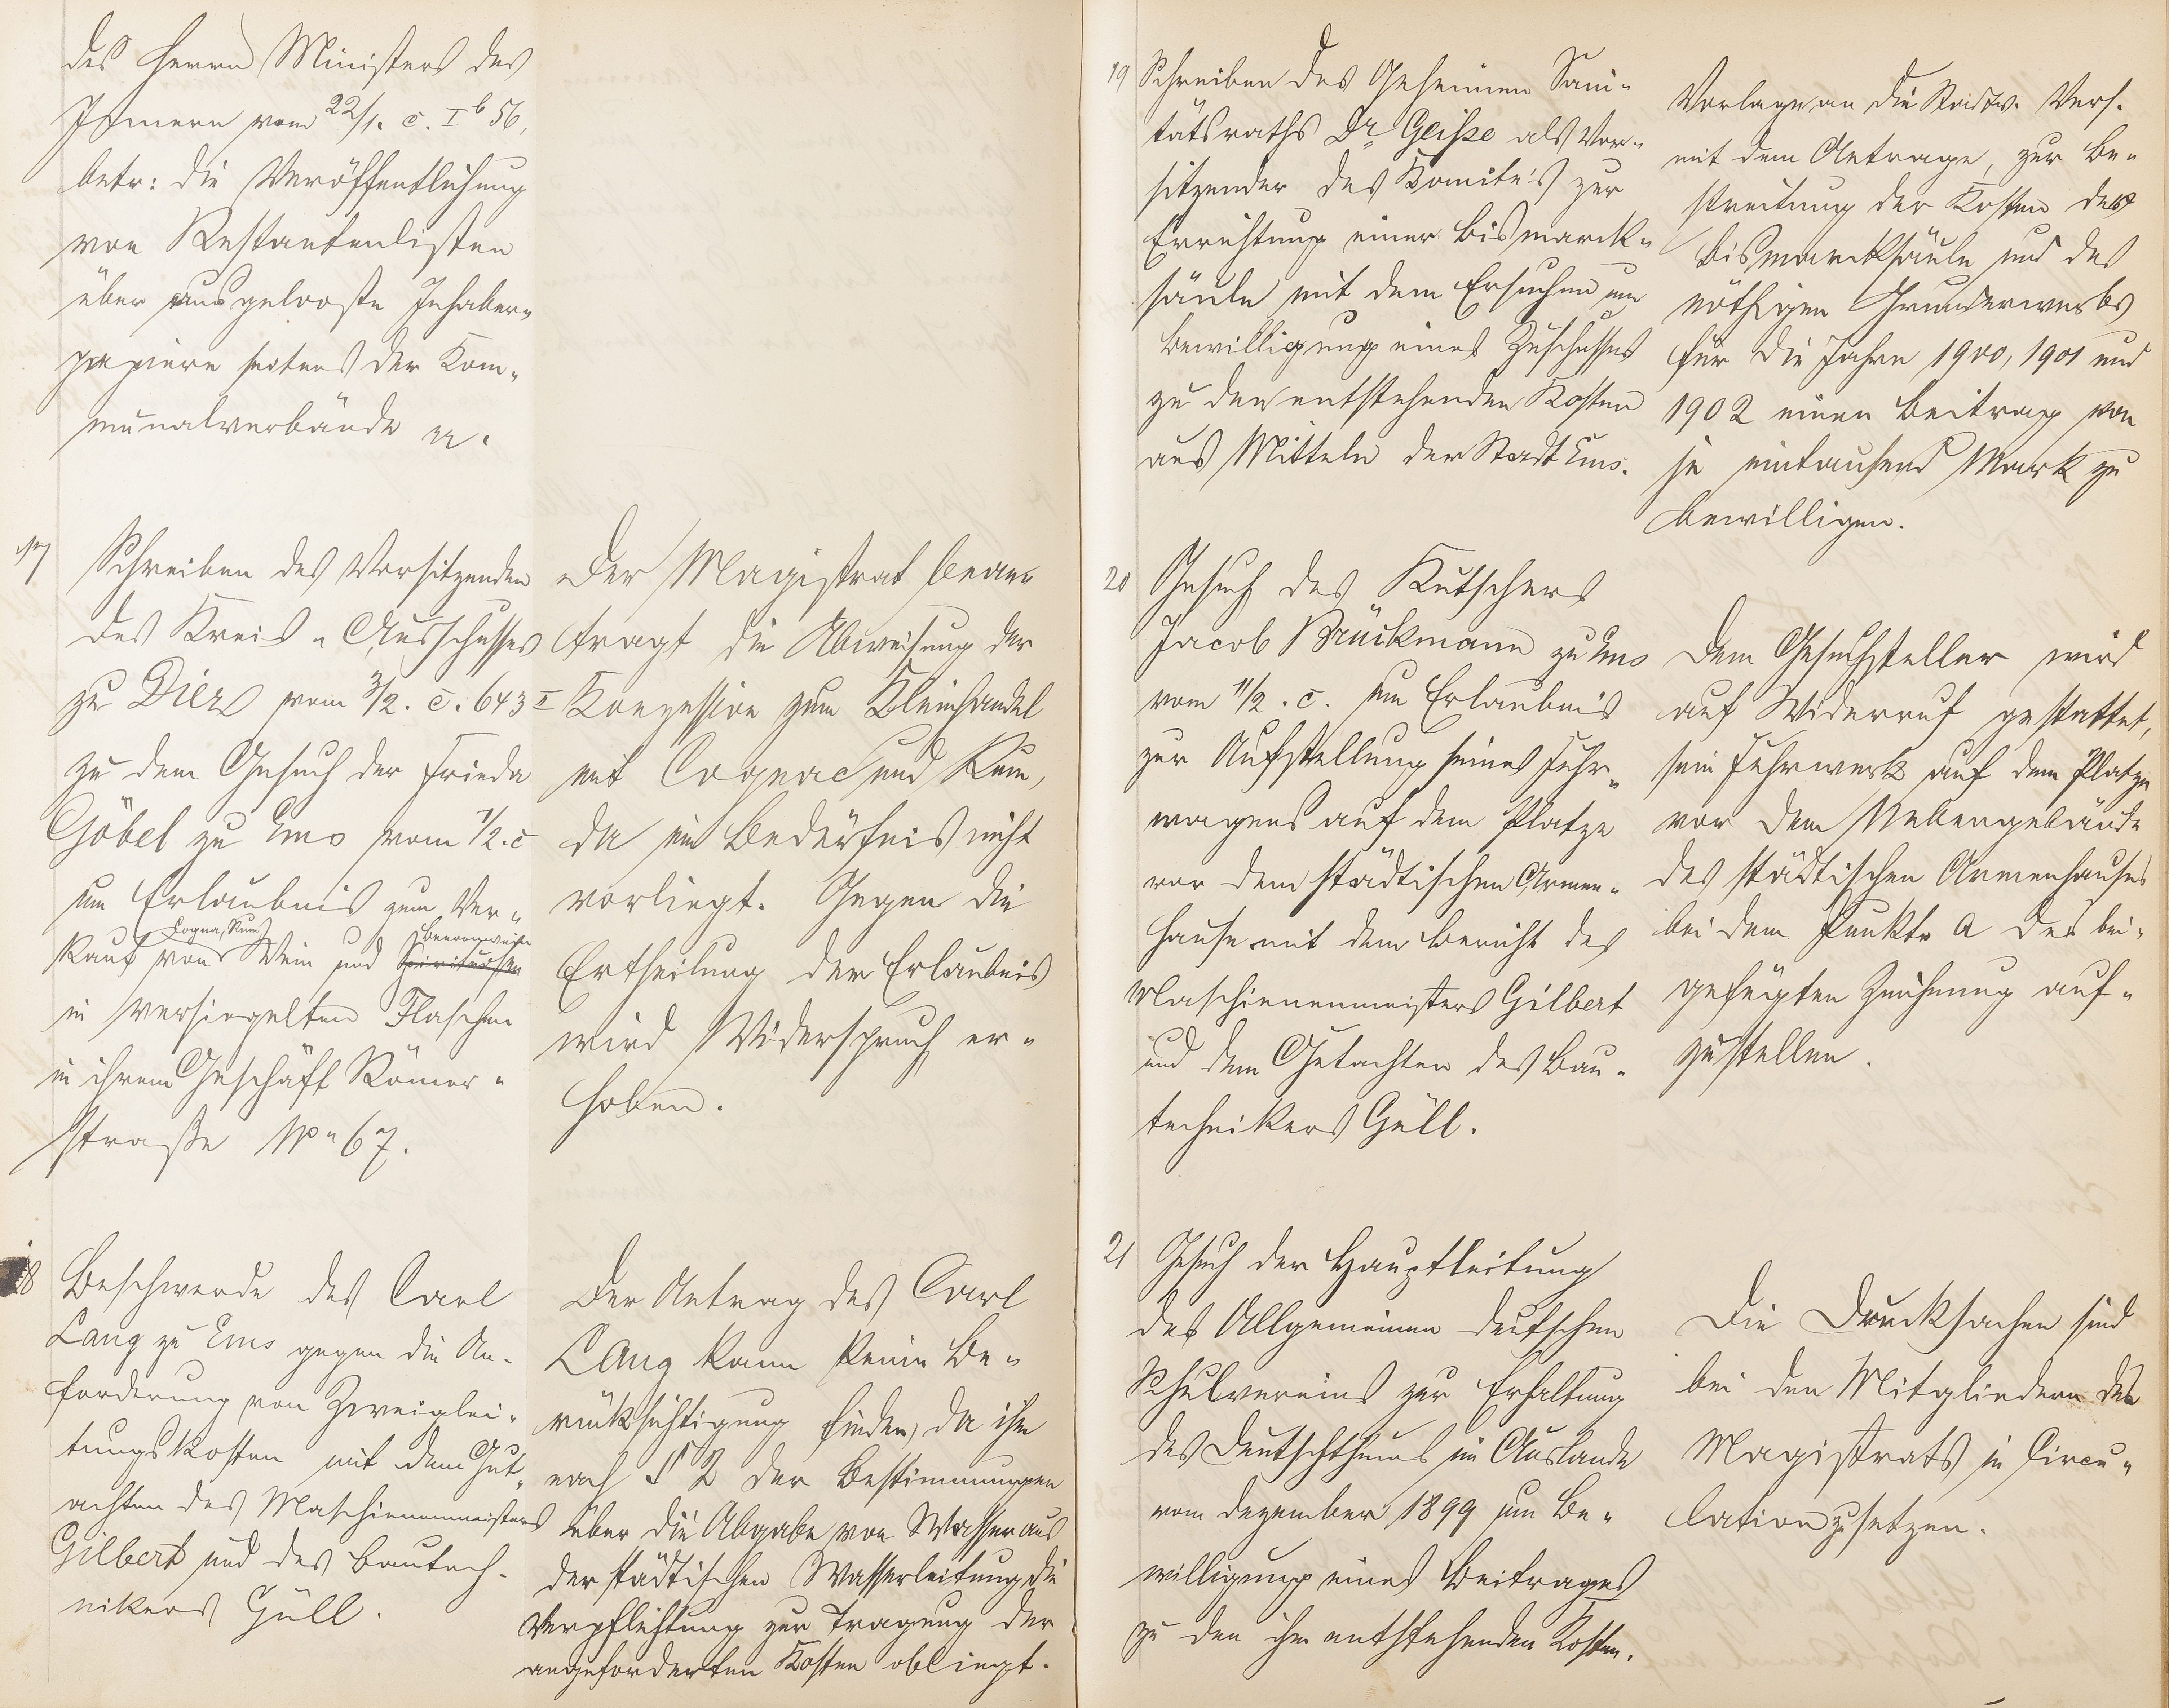 des Herrn Ministers des
Innern vom 22/1. c. I b 56,
betr: die Veröffentlichung
von Restantenlisten
über ausgelooste Inhaber-
papiere seitens der Kom-
munalverbände pp.
17
Schreiben des Vorsitzenden
des Kreis-Ausschusses
zu Diez vom 3/2. c. 643 I
zu dem Gesuch der Frieda
Göbel zu Ems vom 1/2. c
um Erlaubnis zum Ver-
Cognac, Rum
kauf von Wein und Spirituosen
in versiegelten Flaschen
in ihrem Geschäft Römer-
straße No 67.
Der Magistrat bean-
tragt die Abweisung der
Konzession zum Kleinhandel
mit Cognac und Rum,
da ein Bedürfnis nicht
vorliegt. Gegen die
Ertheilung der Erlaubnis
wird Widerspruch er-
hoben.
18
Beschwerde des Carl
Lang zu Ems gegen die An-
forderung von Zweiglei-
tungskosten mit dem Gut-
achten des Maschienenmeisters
Gilbert und des Bautech-
nikers Güll.
Der Antrag des Carl
Lang kann keine Be-
rücksichtigung finden, da ihm
nach § 2 der Bestimmungen
über die Abgabe von Wasser aus
der städtischen Wasserleitung die
Verpflichtung zur Tragung der
angeforderten Kosten obliegt.
19
Schreiben des Geheimen Sani-
tätsraths Dr Geiße als Vor-
sitzender des Komite's zur
Errichtung einer Bismarck-
säule mit dem Ersuchen um
Bewilligung eines Zuschusses
zu den entstehenden Kosten
aus Mitteln der Stadt Ems.
Vorlage an die Stadtv. Vers.
mit dem Antrage, zur Be-
streitung der Kosten der
Bismarcksäule und des
nöthigen Grunderwerbs
für die Jahre 1900, 1901 und
1902 einen Beitrag von
je eintausend Mark zu
bewilligen.
20
Gesuch des Kutschers
Jacob Brückmann zu Ems
vom 11/2. c. um Erlaubnis
zur Aufstellung seines Fuhr-
wagens auf dem Platze
vor dem städtischen Armen-
hause mit dem Bericht des
Maschienenmeisters Gilbert
und dem Gutachten des Bau-
technikers Güll.
Dem Gesuchsteller wird
auf Widerruf gestattet,
sein Fuhrwerk auf dem Platze
vor dem Nebengebäude
des städtischen Armenhauses
bei dem Punkte A der bei-
gefügten Zeichnung auf-
zustellen.
21
Gesuch der Hauptleitung
des Allgemeinen deutschen
Schulvereins zur Erhaltung
des Deutschthums im Auslande
vom Dezember 1899 um Be-
willigung eines Beitrages
zu den ihm entstehenden Kosten.
Die Drucksachen sind
bei den Mitgliedern des
Magistrats in Circu-
lation zu setzen.